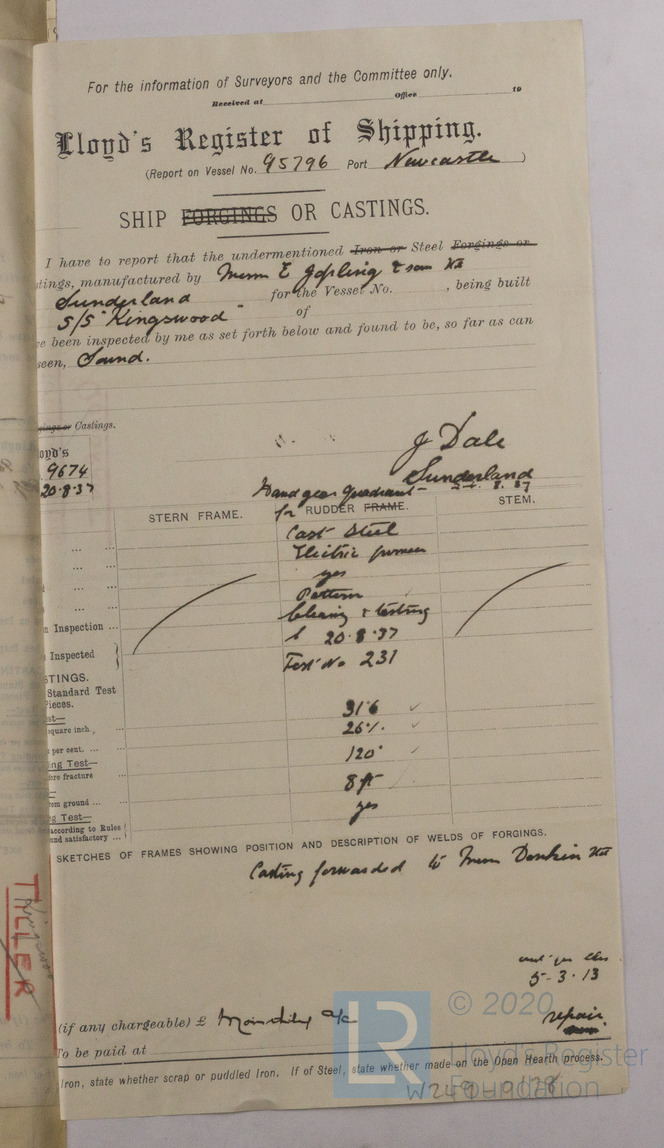 For the information of Surveyors and the Committee only.
Received at Office 19
Lloyd's Register of Shipping.
(Report on Vessel No. 95796 Port Newcastle )
SHIP FORGINGS OR CASTINGS.
I have to report that the undermentioned Iron or Steel Forgings or
tings, manufactured by Messrs E Jopling & Sons Ltd
Sunderland for the Vessel No. , being built
S/S "Kingswood" of
e been inspected by me as set forth below and found to be, so far as can
seen, Sound.
ings or Castings.
oyd's
9674
20.8.37
J Dale
Sunderland
8. 37
Hand gear Quadrant
STERN FRAME. for RUDDER FRAME. STEM.
Cast Steel
Electric furnace
yes
Pattern
Cleaning & testing
n Inspection ... 20.8.37
Inspected Test No 231
STINGS.
Standard Test
Pieces.
est—
square inch, 31.6
per cent. ... 26%.
ing Test— 120°
ore fracture
8 ft
rom ground ...
g Test— yes
according to Rules
nd satisfactory ...
SKETCHES OF FRAMES SHOWING POSITION AND DESCRIPTION OF WELDS OF FORGINGS.
Casting forwarded to Messrs Donkin Ltd
TILLER
Kingswood
5-3.13
(if any chargeable) £ Monthly a/c
repair
To be paid at
Iron, state whether scrap or puddled Iron. If of Steel, state whether made on the Open Hearth process.
W249-0178
LR
© 2020
Lloyd's Register
Foundation